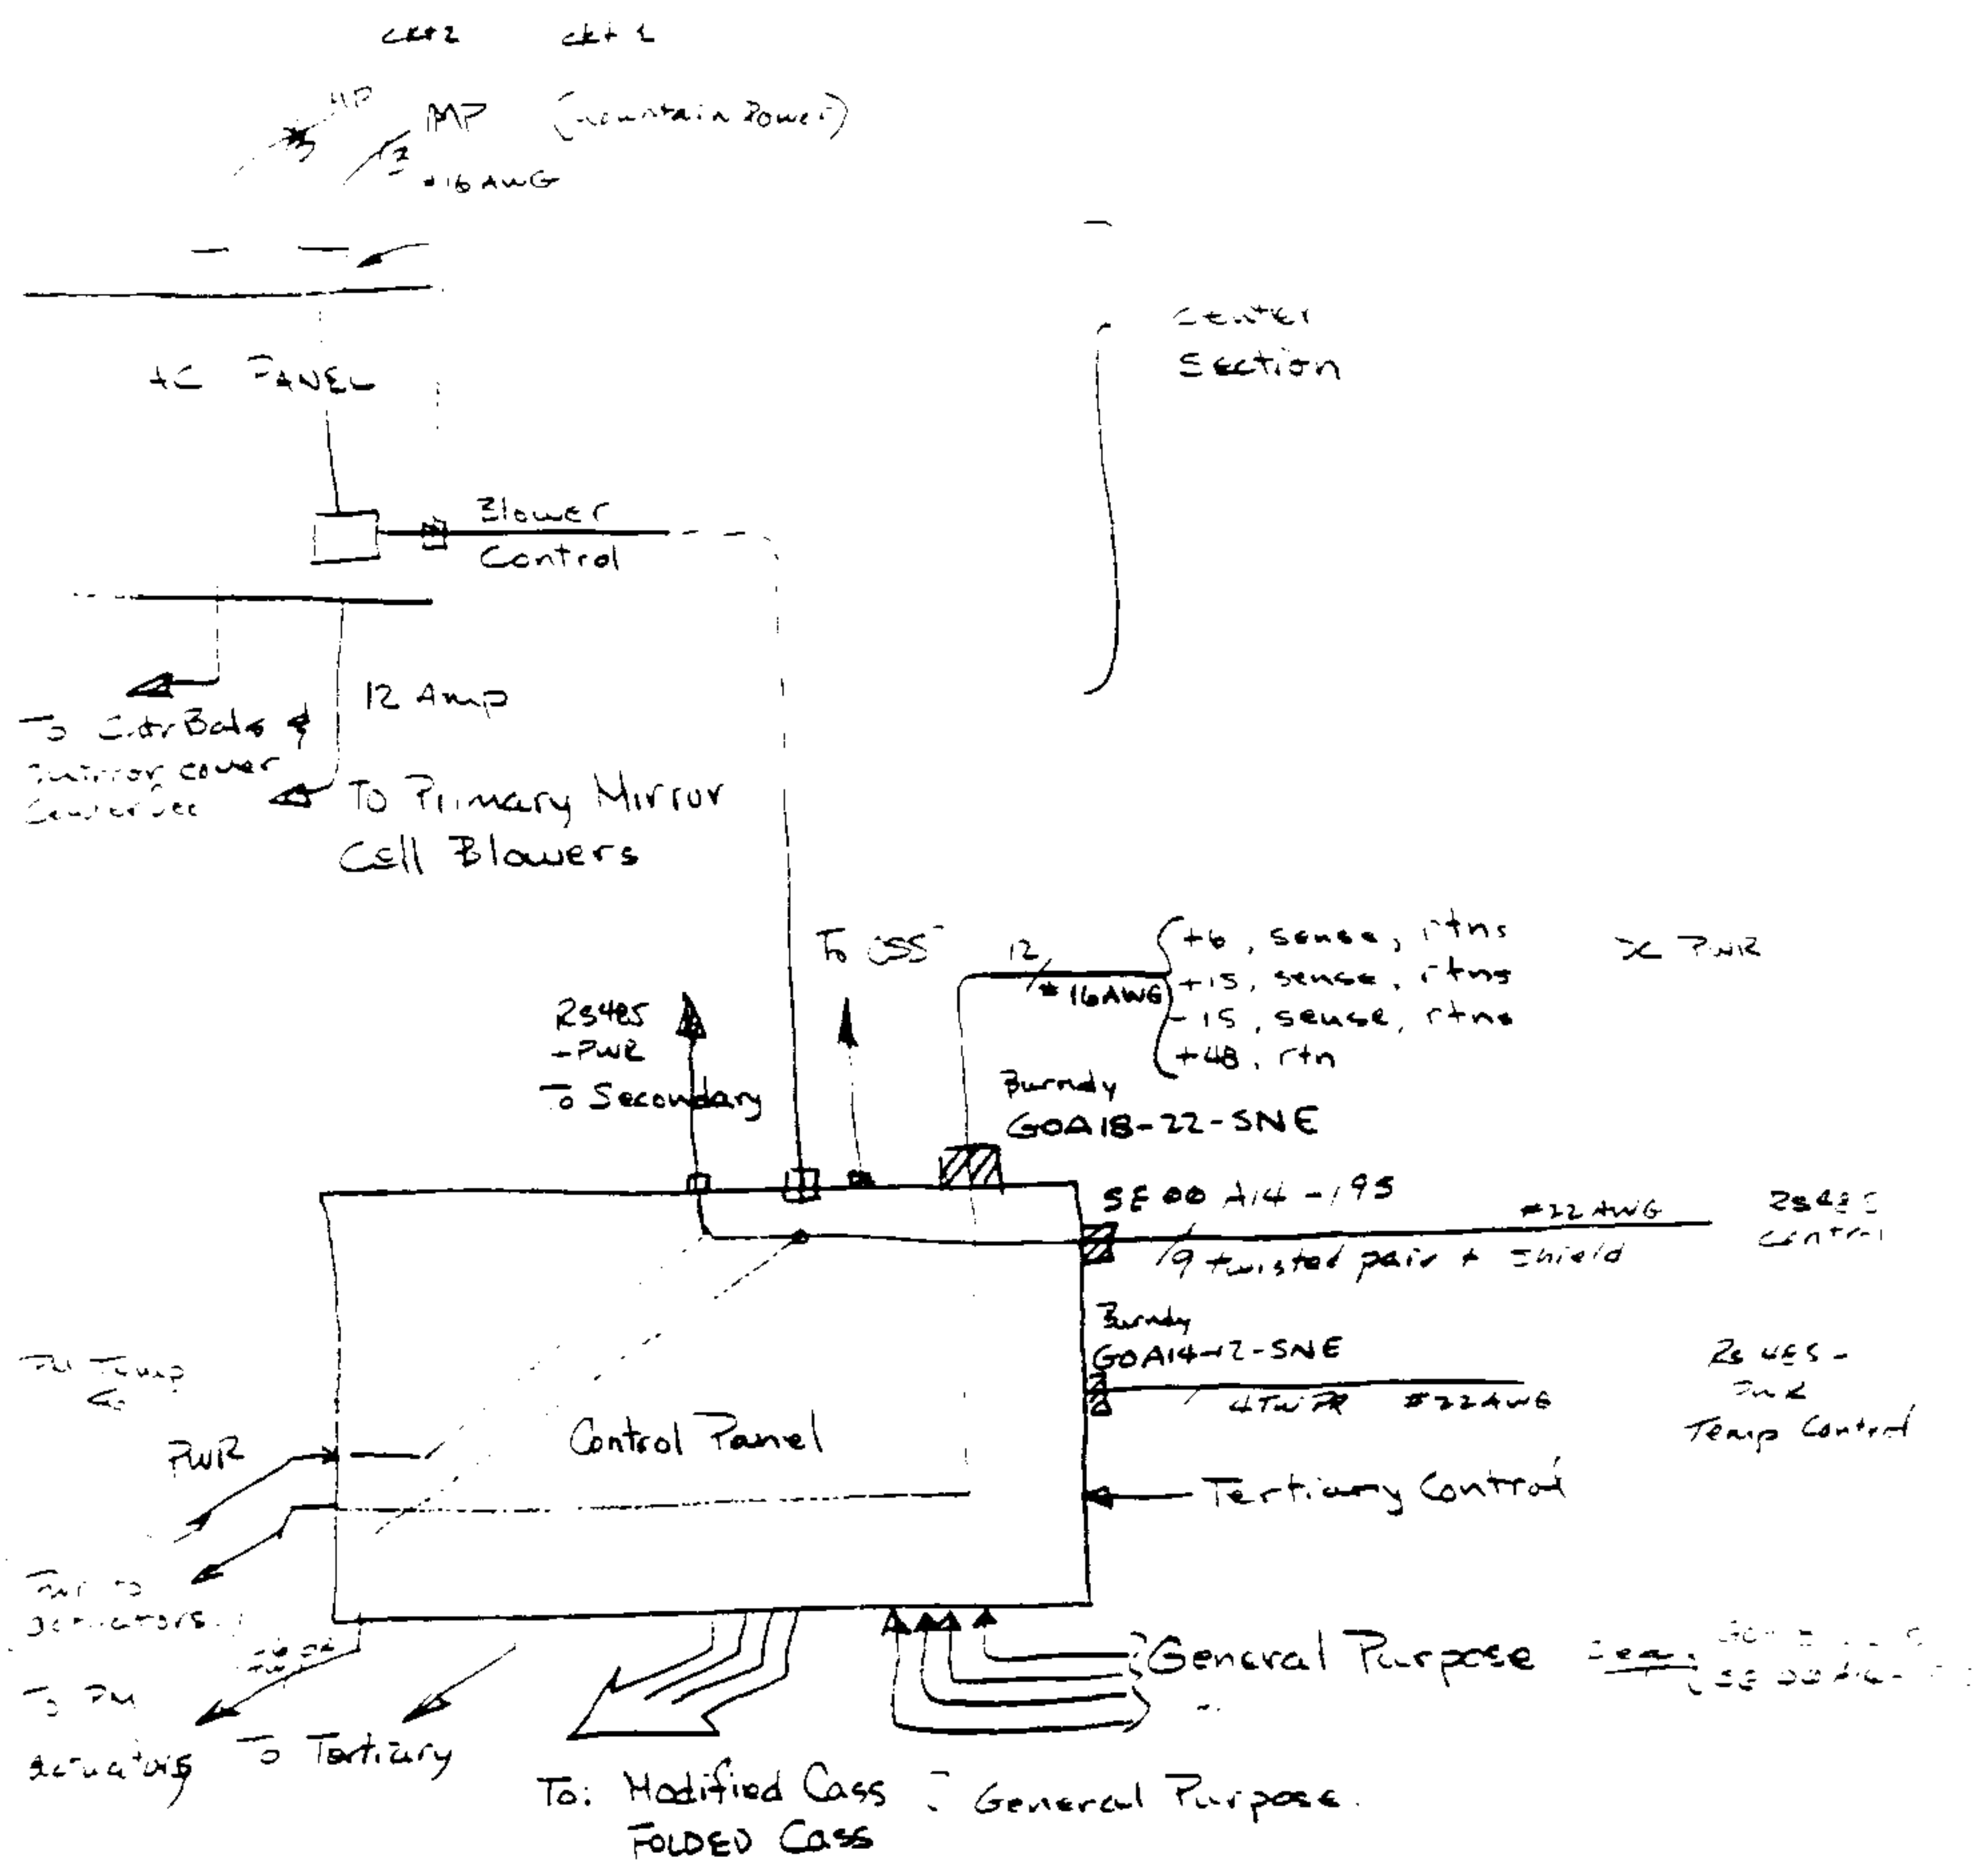 ckt 2 ckt 1
MP MP (mountain Power)
2
#16 AWG
AC PANEL
Center
Section
Blower
Control
12 Amp
To &
mirror cover
To Primary Mirror
Cell Blowers
To CSS
12
#16AWG
+6, sense, rtns
+15, sense, rtns
-15, sense, rtns
+48, rtn
DC PWR
RS485
+PWR
To Secondary
Burndy
GOA18-22-SNE
SE00 A14-19S
#22 AWG
9 twisted pair + shield
RS485
Control
Burndy
GOA14-12-SNE
4TW PR #22AWG
RS485 -
Temp Control
PM Temp
PWR
Control Panel
Tertiary Control
Pwr to
actuators
To PM
actuators
To Tertiary
General Purpose
To: Modified Cass
FOLDED Cass
General Purpose.